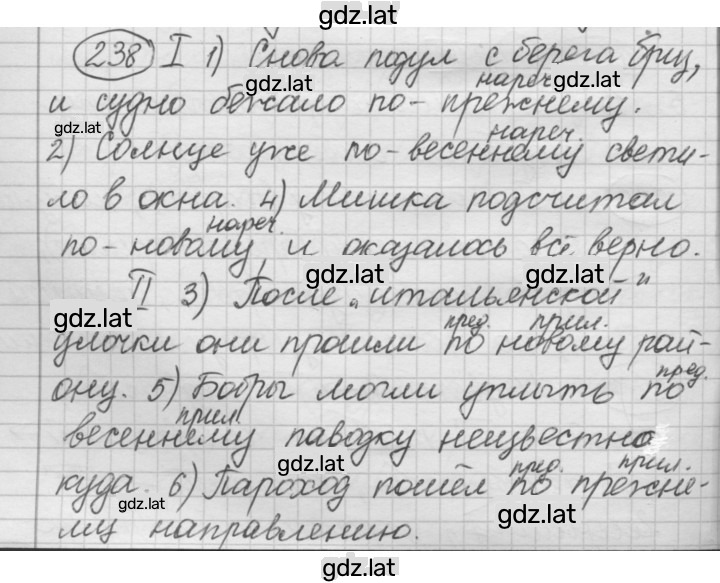 gdz.lat
238 I 1) Снова подул с берега бриз,
gdz.lat нареч. gdz.lat
и судно бежало по-прежнему.
gdz.lat нареч.
2) Солнце уже по-весеннему свети-
ло в окна. 4) Мишка подсчитал
нареч.
по-новому, и оказалось всё верно.
gdz.lat gdz.lat
II 3) После „итальянской"
gdz.lat пред. прил.
улочки они прошли по новому рай-
пред.
ону. 5) Бобры могли уплыть по
прил.
весеннему паводку неизвестно
gdz.lat пред. прил.
куда. 6) Пароход пошёл по прежне-
gdz.lat gdz.lat
му направлению.
gdz.lat